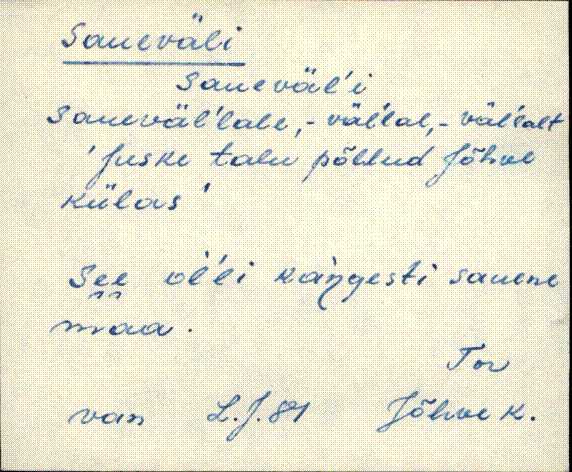 Saueväli
Saueväl'i
Saueväl'lale, - väl'lal, - väl'lalt
'Juske talu põllud Jõhve
külas'
See ol'li kaŋgesti sauene
maa.
Tor
van L.J. 81 Jõhve k.